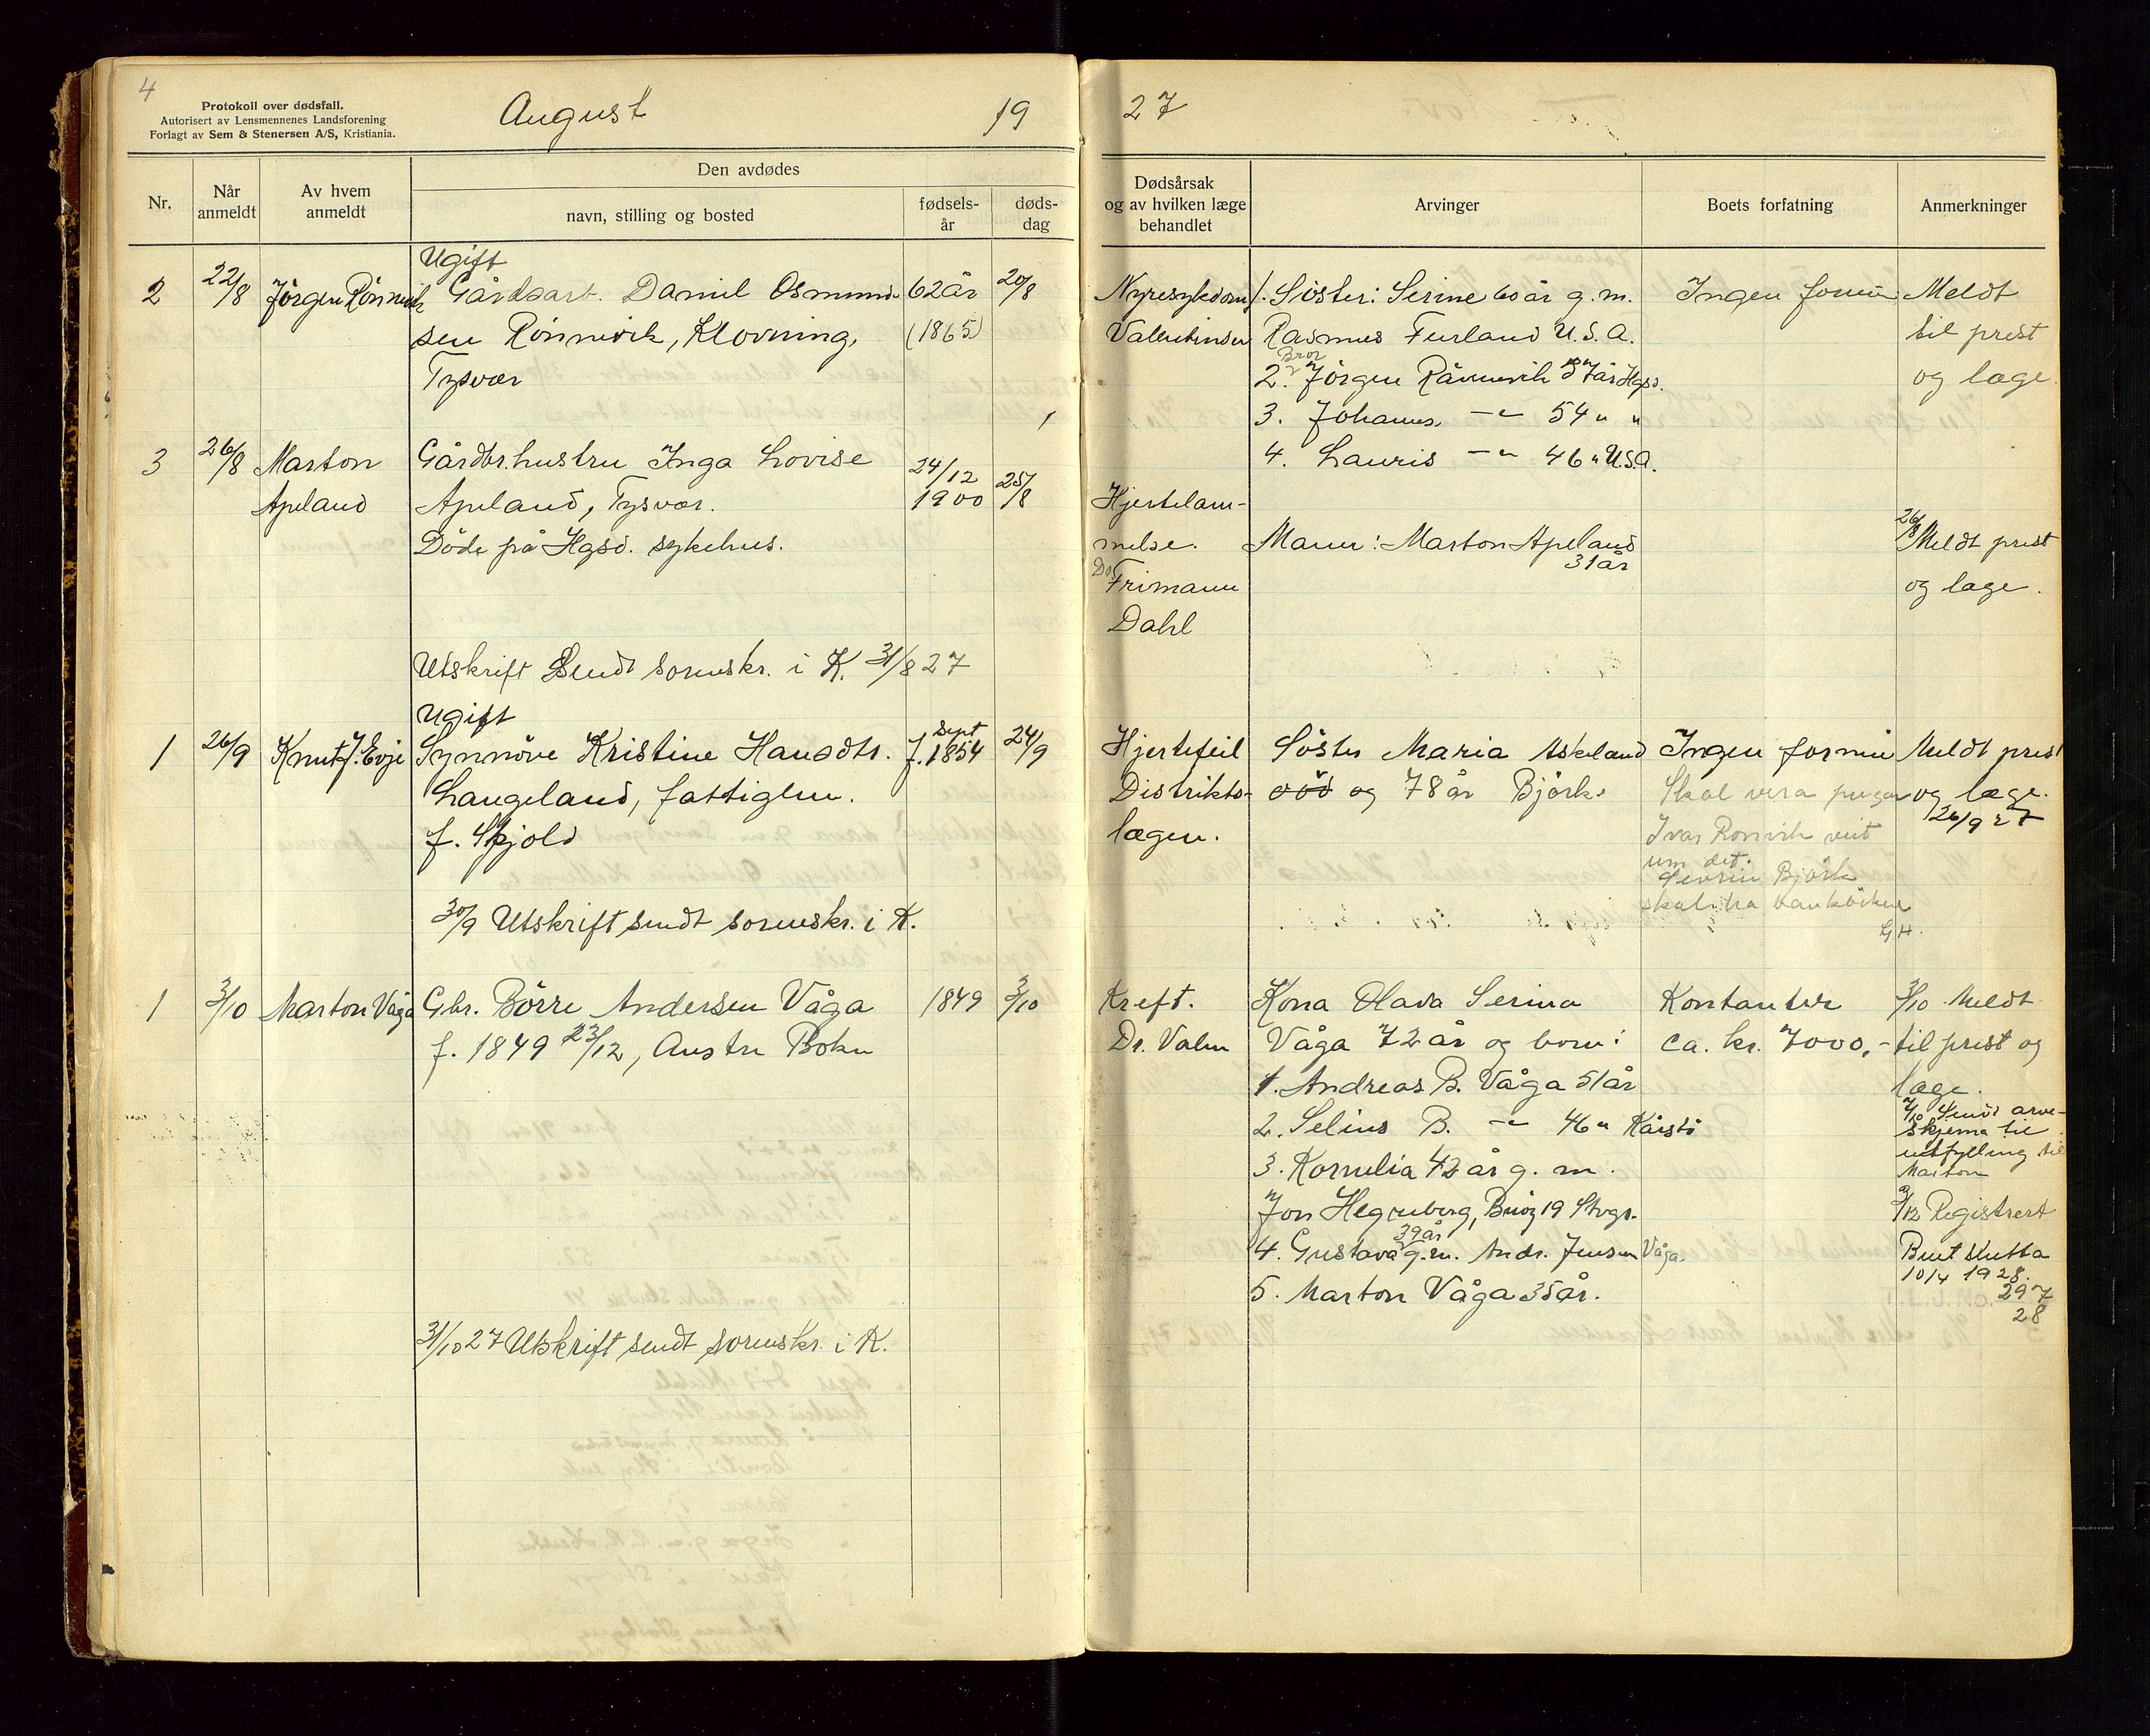 4
Protokoll over dødsfall.
Autorisert av Lensmennenes Landsforening
Forlagt av Sem & Stenersen A/S, Kristiania.
August 19 27
Nr.
Når anmeldt
Av hvem anmeldt
Den avdødes
navn, stilling og bosted
fødsels-år
døds-dag
Dødsårsak og av hvilken læge behandlet
Arvinger
Boets forfatning
Anmerkninger
2
22/8
Jörgen Rönnevik
Ugift
Gårdsarb. Daniel Osmund-
sen Rönnevik, Klovning,
Tysvær
62 år
(1865)
20/8
Nyresykdom
Valentinsen
1. Söster: Serine 60 år g. m.
Rasmus Furland U.S.A.
Bror
2. Jörgen Rönnevik 57 år Hgsd.
3. Johannes —"— 54 " "
4. Lauris —"— 46 " U.S.A.
Ingen formue
Meldt
til prest
og læge.
3
26/8
Marton
Apeland
Gårdbr.hustru Inga Lovise
Apeland, Tysvær.
Döde på Hgsd. sykehus.
24/12
1900
25/8
Hjertelam-
melse.
Dr
Frimann
Dahl
Mann: Marton Apeland
31 år
26/8 Meldt prest
og læge.
Utskrift Sendt sorenskr. i K. 31/8 27
1
26/9
Knut J. Evje
Ugift
Synnöve Kristine Hansdtr.
Langeland, fattiglem.
f. Skjold
Sept
f. 1854
24/9
Hjertefeil
Distrikts-
lægen.
Söster Maria Askeland
og 78 år Björk.
Ingen formue
Skal vera pengar
Ivar Ronvik veit
um det.
Sevrin Björk
skal ha bankböker
G.H.
Meldt prest
og læge.
26/9 27
30/9 Utskrift sendt sorenskr. i K.
1
3/10
Marton Våga
Gbr. Börre Andersen Våga
f. 1849 23/12, Austre Bokn
1849
3/10
Kreft.
Dr. Valen
Kona Olava Serina
Våga 72 år og born:
1. Andreas B. Våga 51 år
2. Selius B. —"— 46 " Kårstö
3. Kornelia 42 år g. m.
Jon Hegreberg, 19 Stvgr.
39 år
4. Gustava g. m. Andr. Jensen Våga.
5. Marton Våga 35 år.
Kontanter
ca. kr. 7000,-
3/10 Meldt
til prest og
læge.
7/10 Sendt arve-
skjema til
utfylling til
Marton
9/12 Registrert
Buet slutta
10/4 1928.
297
28
31/10 27 Utskrift sendt sorenskr. i K.